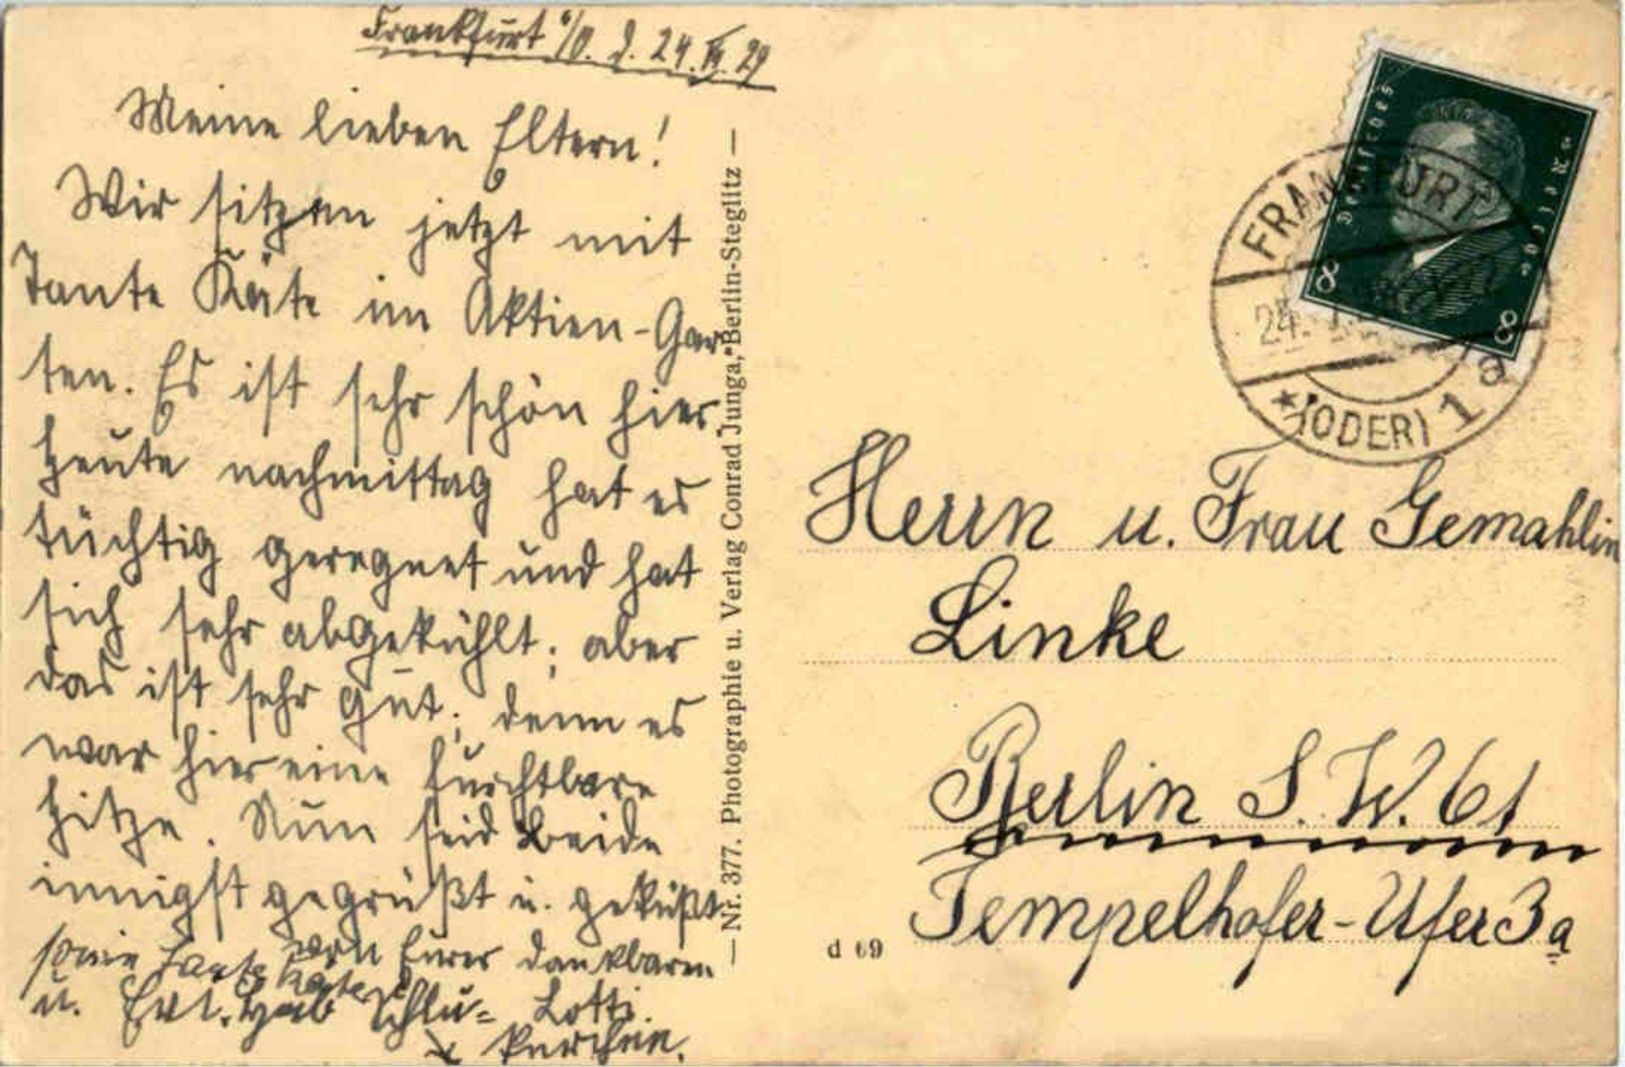 Frankfurt a/O. d. 24. VI. 29
Meine lieben Eltern!
Wir sitzen jetzt mit
Tante Käte im Aktien-Gar
ten. Es ist sehr schön hier.
Heute nachmittag hat es
tüchtig geregnet und hat
sich sehr abgekühlt; aber
das ist sehr gut; denn es
war hier eine furchtbare
Hitze. Nun seid beide
innigst gegrüßt u. geküßt
von Eurer dankbaren
Lotti.
sowie Tante Käte
u.
— Nr. 377. Photographie u. Verlag Conrad Junga, Berlin-Steglitz —
Deutsches Reich
8 8
FRANKFURT
24.
* (ODER) 1 a
Herrn u. Frau Gemahlin
Linke
Berlin S. W. 61
Tempelhofer-Ufer 3a
d 69